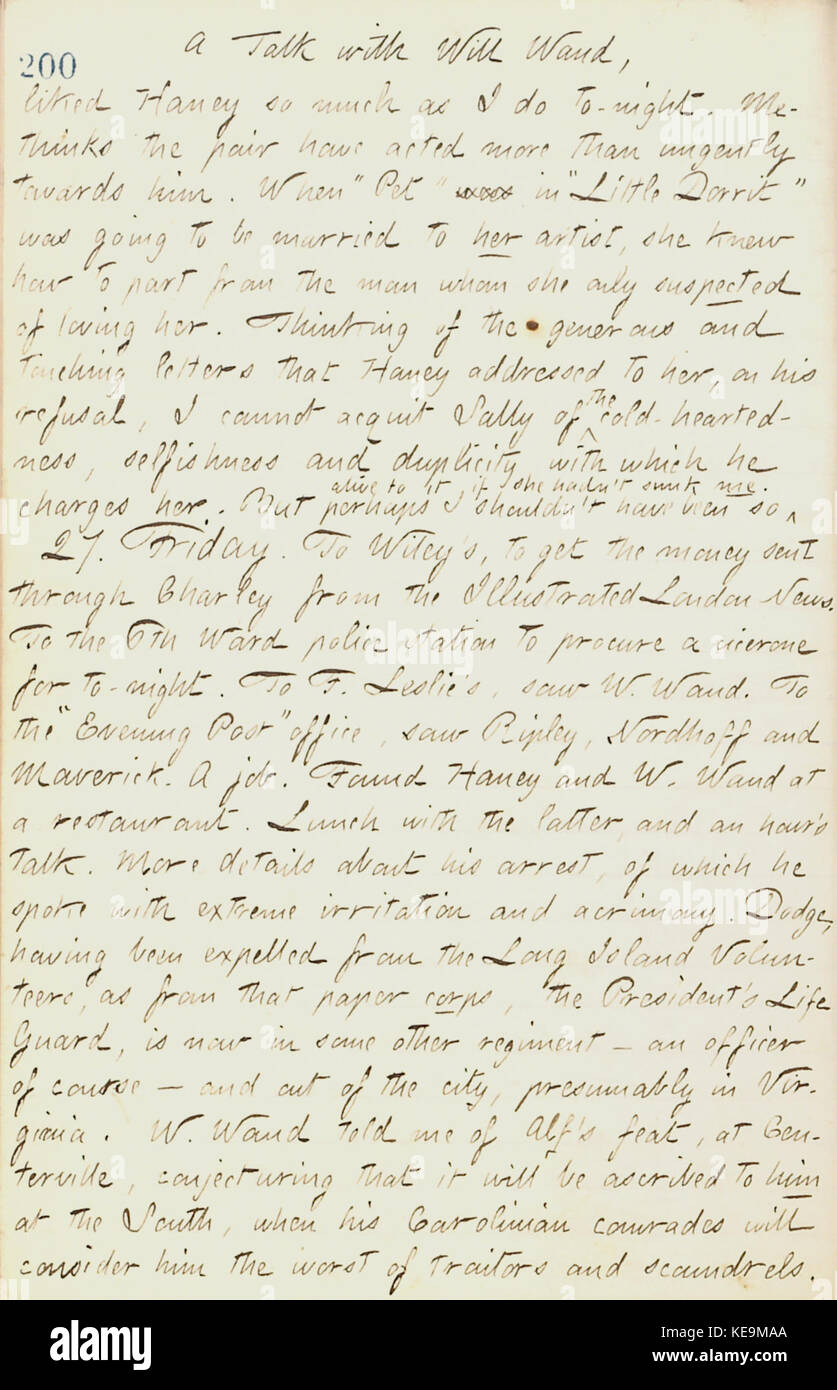 200
A Talk with Will Waud,
liked Haney so much as I do to-night. Me-
thinks the pair have acted more than ungently
towards him. When "Pet" was in "Little Dorrit"
was going to be married to her artist, she knew
how to part from the man whom she only suspected
of loving her. Thinking of the generous and
touching letters that Haney addressed to her, on his
refusal, I cannot acquit Sally of the cold-hearted-
ness, selfishness and duplicity with which he
charges her. But perhaps I shouldn't have been so alive to it, if she hadn't sunk me.
27. Friday. To Wiley's, to get the money sent
through Charley from the Illustrated London News.
To the 6th Ward police station to procure a cicerone
for to-night. To F. Leslie's, saw W. Waud. To
the "Evening Post" office, saw Ripley, Nordhoff and
Maverick. A job. Found Haney and W. Waud at
a restaurant. Lunch with the latter, and an hour's
talk. More details about his arrest, of which he
spoke with extreme irritation and acrimony. Dodge,
having been expelled from the Long Island Volun-
teers, as from that paper corps, the President's Life
Guard, is now in some other regiment — an officer
of course — and out of the city, presumably in Vir-
ginia. W. Waud told me of Alf's feat, at Cen-
terville, conjecturing that it will be ascribed to him
at the South, when his Carolinian comrades will
consider him the worst of traitors and scoundrels.
alamy
Image ID: KE9MAA
www.alamy.com